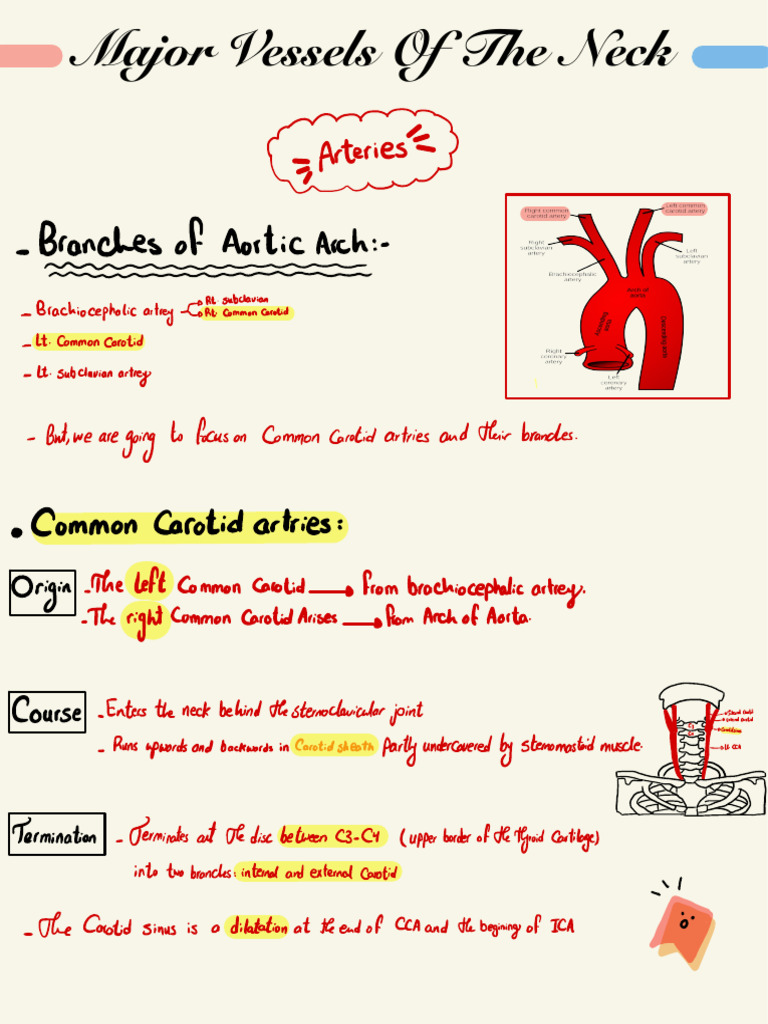 Major Vessels Of The Neck
Arteries
- Branches of Aortic Arch:-
- Brachiocephalic artrey
Rt. subclavian
Rt. Common Carotid
- Lt. Common Carotid
- Lt. subclavian artrey
Right common
carotid artery
Left common
carotid artery
Right
subclavian
artery
Left
subclavian
artery
Brachiocephalic
artery
Arch of
aorta
Ascending
aorta
Descending aorta
Right
coronary
artery
Left
coronary
artery
- But, we are going to focus on Common Carotid artries and their branches.
• Common Carotid artries:
Origin
- The left Common Carotid → from brachiocephalic artrey.
- The right Common Carotid Arises → from Arch of Aorta.
Course
- Enters the neck behind the sternoclavicular joint
- Runs upwords and backwords in Carotid sheath partly undercovered by sternomastoid muscle.
C3
C4
Lt CCA
Termination
- Terminates at the disc between C3-C4 (upper border of the thyroid Cartilage)
into two branches: internal and external Carotid
- The Carotid sinus is a dilatation at the end of CCA and the begining of ICA